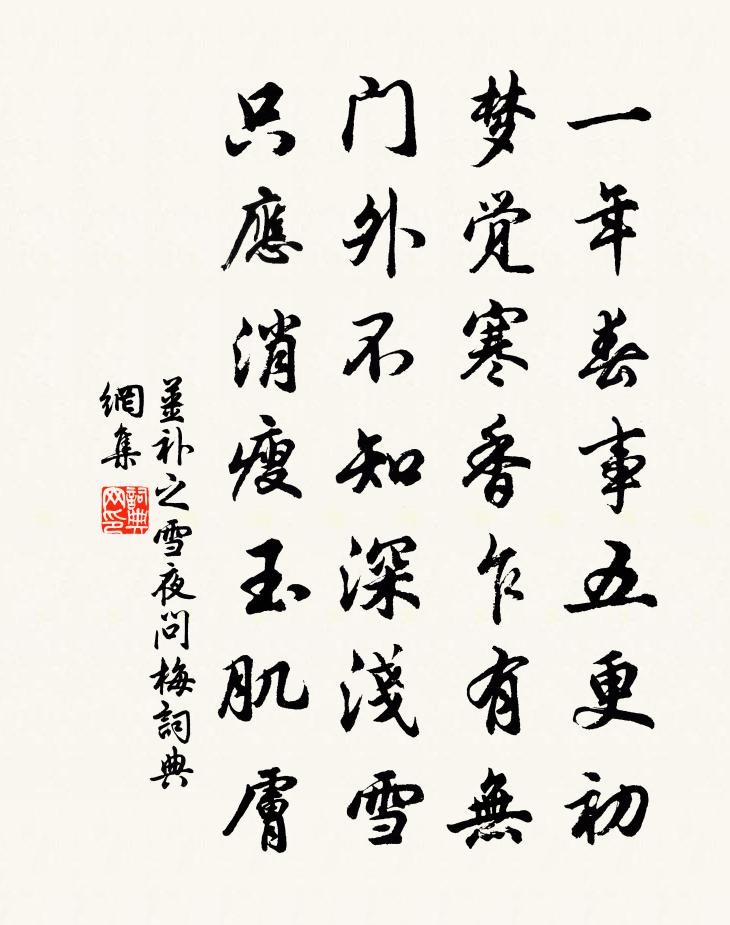 一年春事五更初
梦觉寒香乍有無
门外不知深淺雪
只應消瘦玉肌膚
姜补之雪夜问梅詞典
網集
詞典
网印